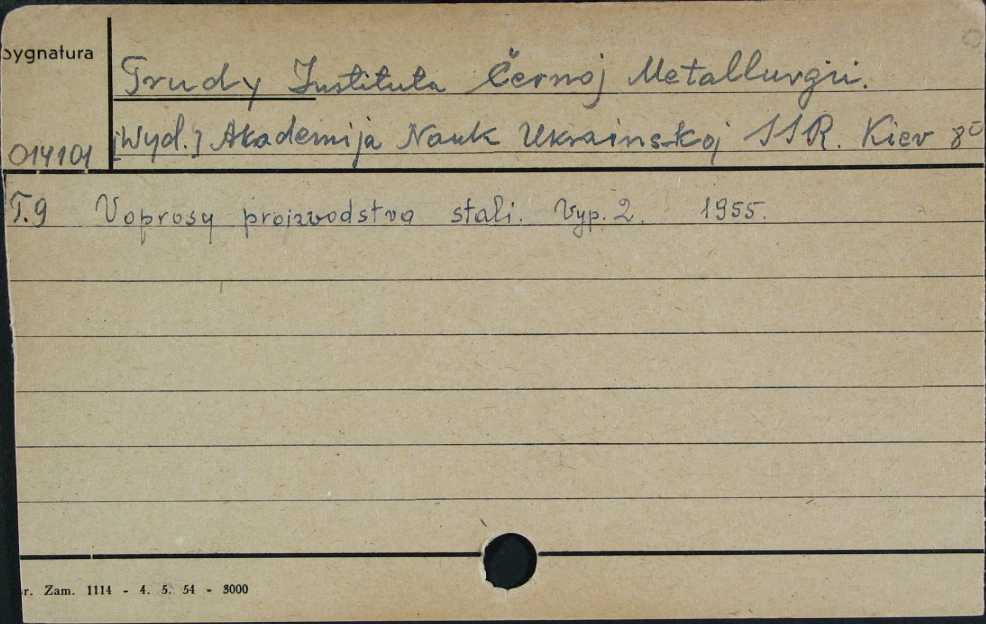 sygnatura
Trudy Instituta Černoj Metallurgii.
014101 [Wyd.] Akademija Nauk Ukrainskoj SSR. Kiev 8°
T.9 Voprosy proizvodstva stali. Vyp. 2. 1955.
r. Zam. 1114 - 4. 5. 54 - 3000